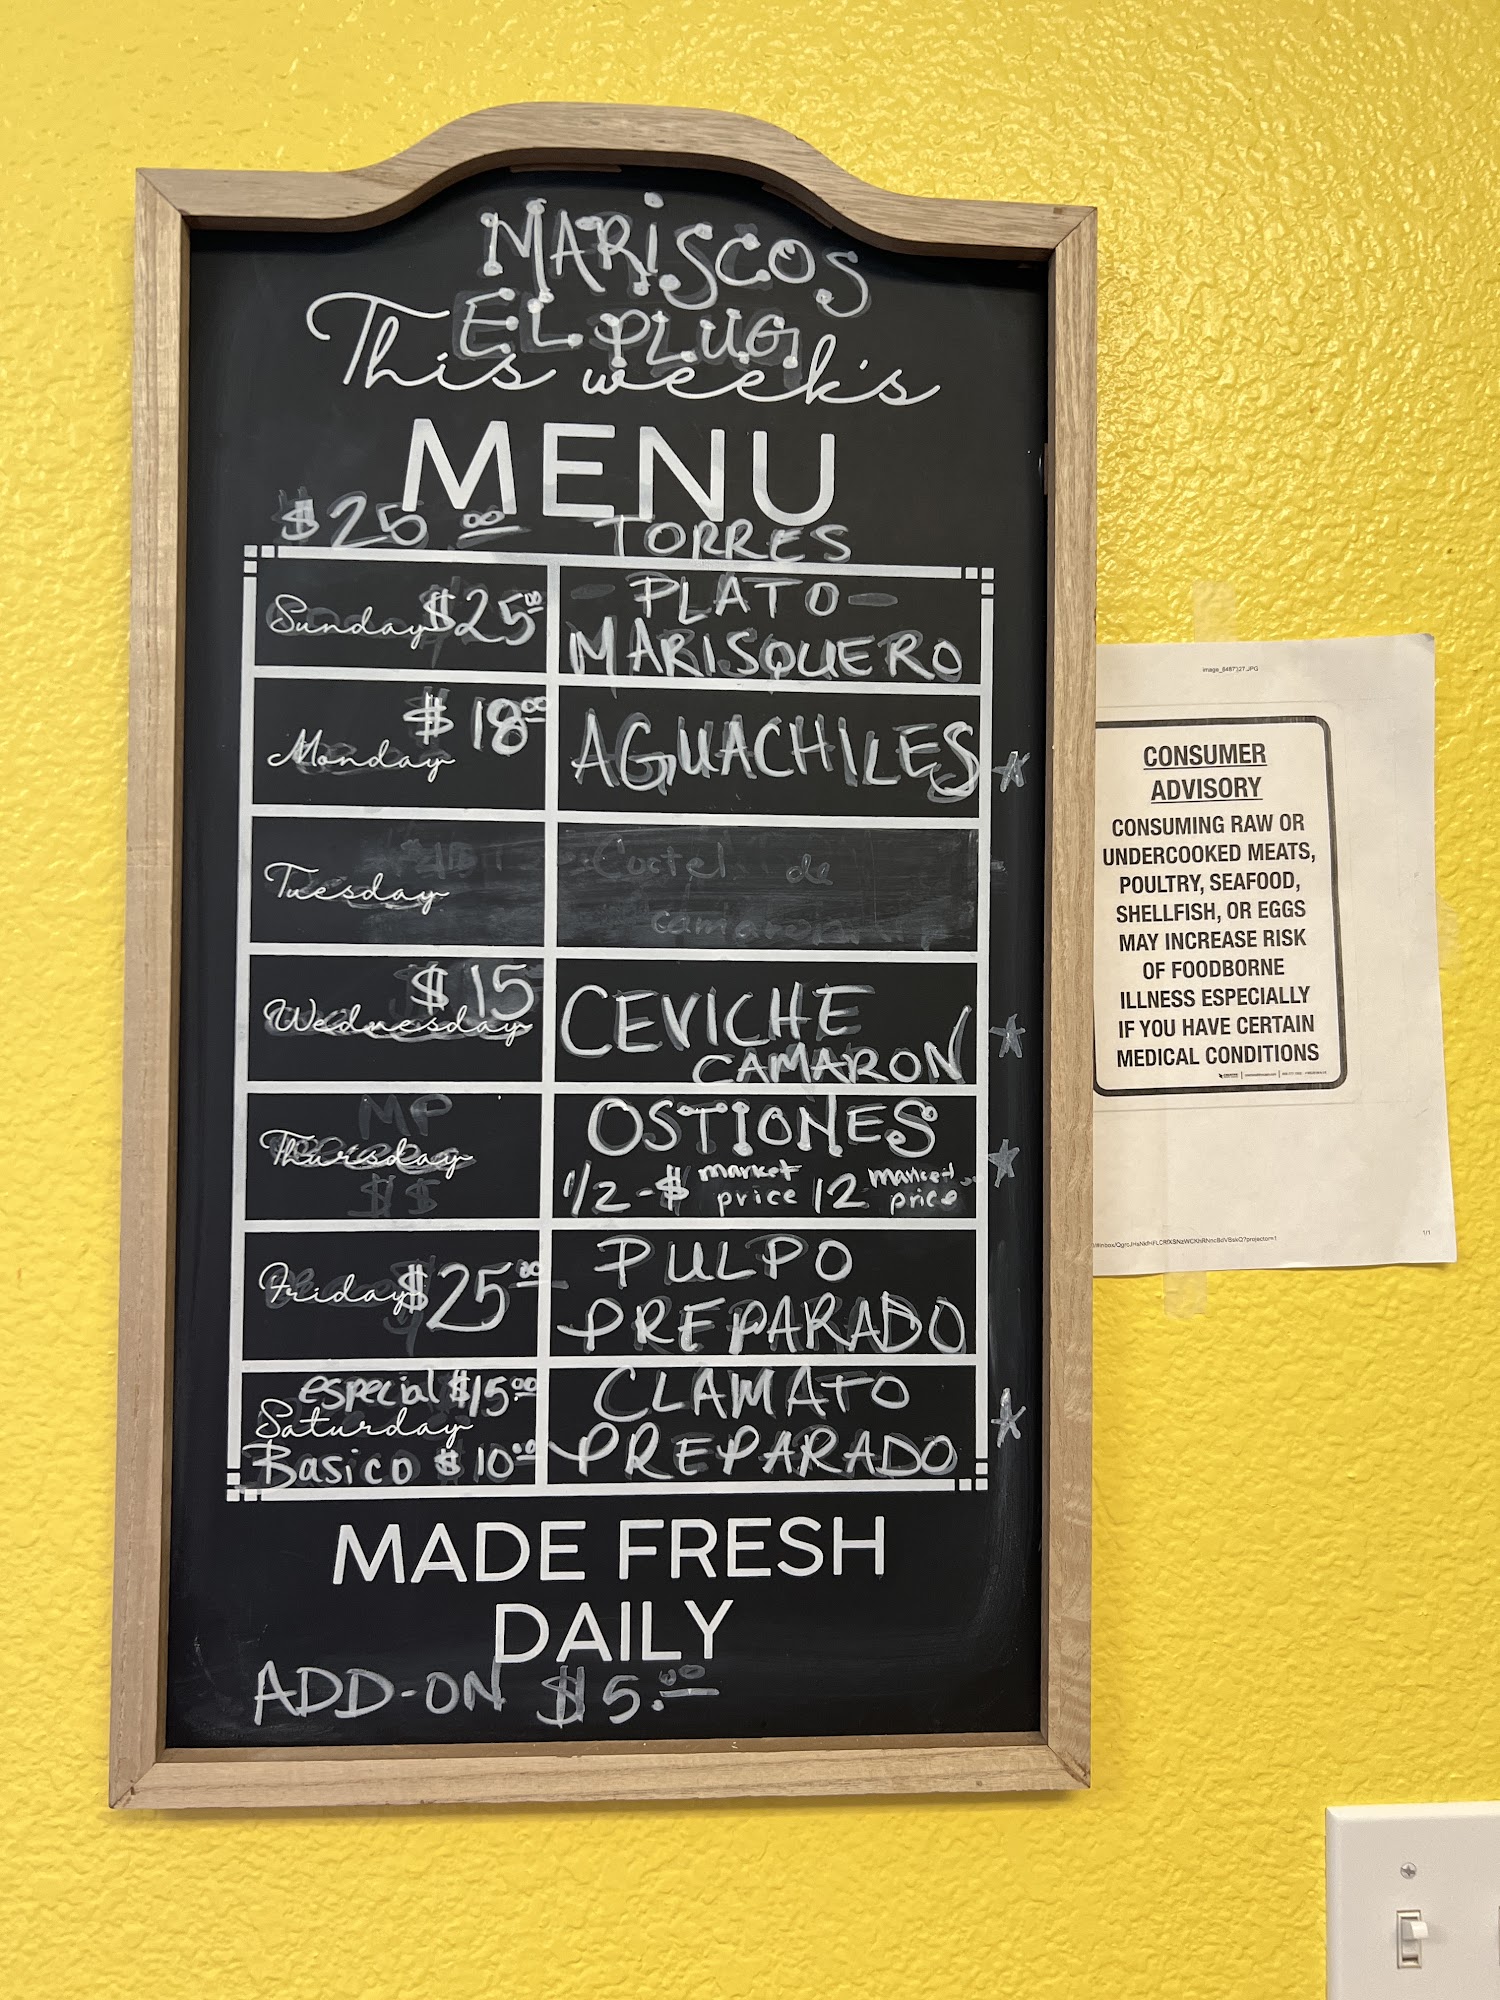 MARISCOS
EL PLUG
This week's
MENU
$25.00 TORRES
Sunday $25 PLATO
MARISQUERO
Monday $18.00 AGUACHILES
Tuesday Coctel de
Wednesday $15 CEVICHE
CAMARON
MP
Thursday OSTIONES
$$ 1/2-$ market price 12 market price
Friday $25.00 PULPO
PREPARADO
especial $15.00 CLAMATO
Saturday
Basico $10.00 PREPARADO
MADE FRESH
DAILY
ADD-ON $5.00
CONSUMER
ADVISORY
CONSUMING RAW OR
UNDERCOOKED MEATS,
POULTRY, SEAFOOD,
SHELLFISH, OR EGGS
MAY INCREASE RISK
OF FOODBORNE
ILLNESS ESPECIALLY
IF YOU HAVE CERTAIN
MEDICAL CONDITIONS
1/1